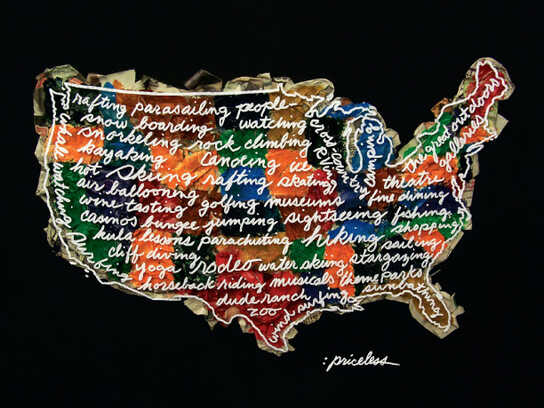 rafting parasailing people-
snow boarding watching
snorkeling rock climbing
kayaking Canoeing ice
hot skiing rafting skating
air ballooning
wine tasting golfing museums
casinos bungee jumping sightseeing fishing
hula lessons parachuting hiking sailing
cliff diving
yoga rodeo water skiing stargazing
horseback riding musicals theme parks
dude ranch
zoo
wind surfing
sunbathing
shopping
fine dining
theatre
galleries
the great outdoors
camping
whale watching
surfing
:priceless